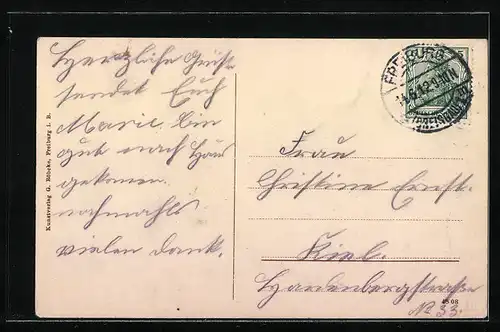 Herzliche Grüße
sendet Euch
Marie. bin
gut nach Haus
gekommen.
nochmahls
vielen dank.
Kunstverlag G. Röbcke, Freiburg i. B.
FREIBURG
(BREISGAU)
Frau
Christine Ernst.
Kiel.
Hardenbergstraße
No 33.